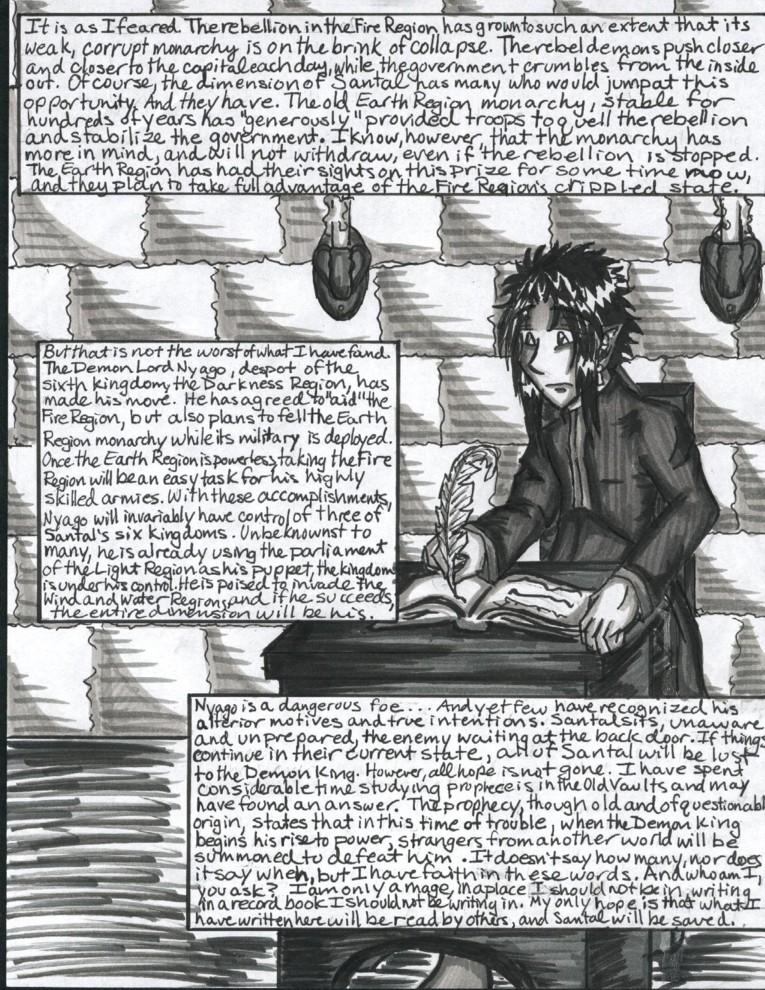 It is as I feared. The rebellion in the Fire Region has grown to such an extent that its
weak, corrupt monarchy is on the brink of collapse. The rebel demons push closer
and closer to the capital each day, while the government crumbles from the inside
out. Of course, the dimension of Santal has many who would jump at this
opportunity. And they have. The old Earth Region monarchy, stable for
hundreds of years has "generously" provided troops to quell the rebellion
and stabilize the government. I know, however, that the monarchy has
more in mind, and will not withdraw, even if the rebellion is stopped.
The Earth Region has had their sights on this prize for some time now,
and they plan to take full advantage of the Fire Region's crippled state.
But that is not the worst of what I have found.
The Demon Lord Nyago, despot of the
sixth kingdom, the Darkness Region, has
made his move. He has agreed to "aid" the
Fire Region, but also plans to fell the Earth
Region monarchy while its military is deployed.
Once the Earth Region is powerless, taking the Fire
Region will be an easy task for his highly
skilled armies. With these accomplishments,
Nyago will invariably have control of three of
Santal's six kingdoms. Unbeknownst to
many, he is already using the parliament
of the Light Region as his puppet, the kingdom
is under his control. He is poised to invade the
Wind and Water Regions, and if he succeeds,
the entire dimension will be his.
Nyago is a dangerous foe... And yet few have recognized his
alterior motives and true intentions. Santal sits, unaware
and unprepared, the enemy waiting at the back door. If things
continue in their current state, all of Santal will be lost
to the Demon King. However, all hope is not gone. I have spent
considerable time studying propheceis in the Old Vaults and may
have found an answer. The prophecy, though old and of questionabl
origin, states that in this time of trouble, when the Demon King
begins his rise to power, strangers from another world will be
summoned to defeat him. It doesn't say how many, nor does
it say when, but I have faith in these words. And who am I,
you ask? I am only a mage, in a place I should not be in, writing
in a record book I should not be writing in. My only hope is that what I
have written here will be read by others, and Santal will be saved.